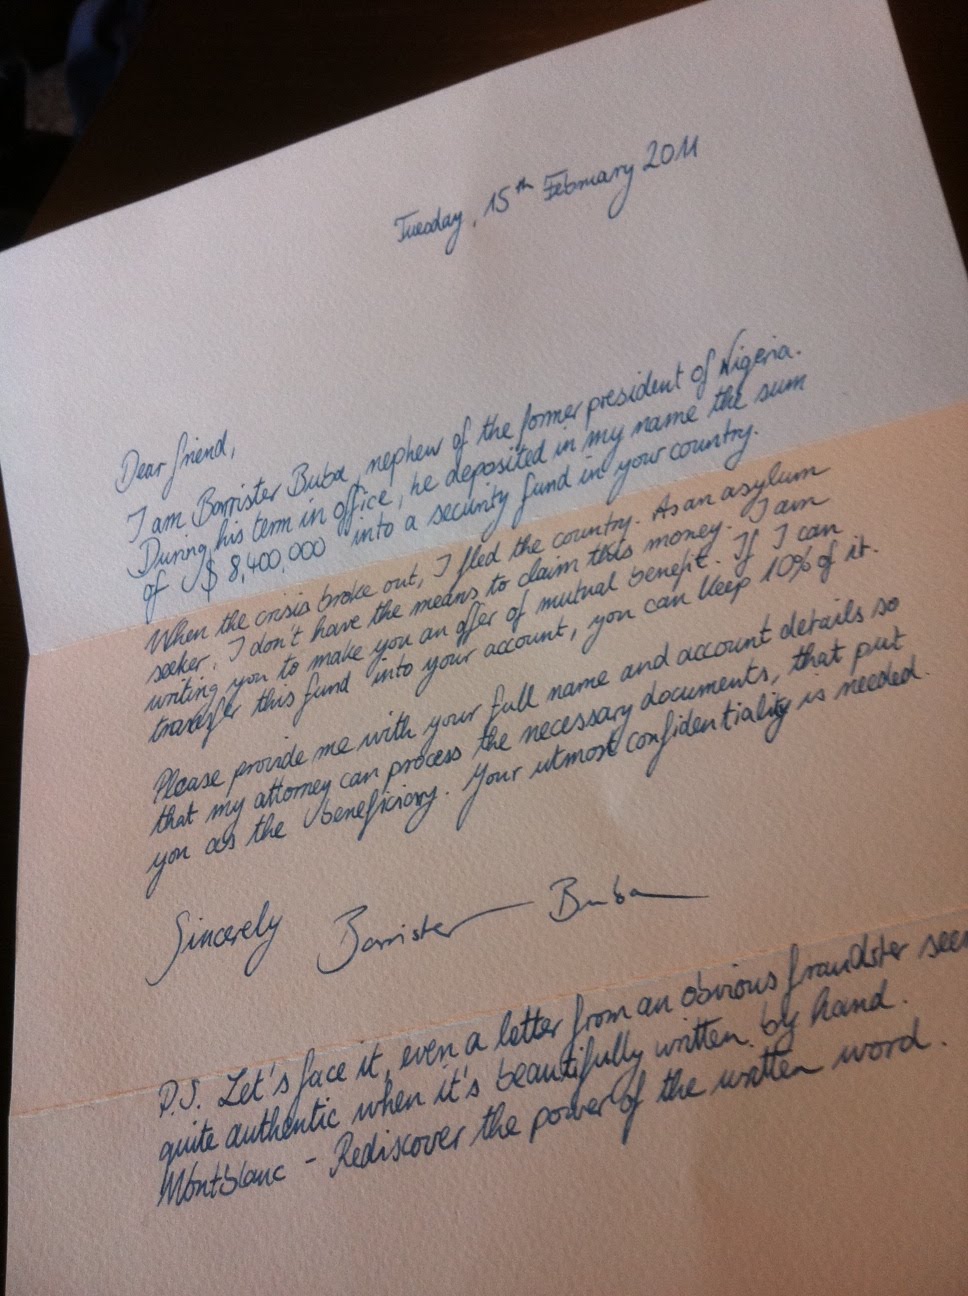 Tuesday, 15th February 2011
Dear friend,
I am Barrister Buba, nephew of the former president of Nigeria.
During his term in office, he deposited in my name the sum
of $ 8,400,000 into a security fund in your country.
When the crisis broke out, I fled the country. As an asylum
seeker, I don't have the means to claim this money. I am
writing you to make you an offer of mutual benefit. If I can
transfer this fund into your account, you can keep 10% of it.
Please provide me with your full name and account details so
that my attorney can process the necessary documents, that put
you as the beneficiary. Your utmost confidentiality is needed.
Sincerely Barrister Buba
P.S. Let's face it, even a letter from an obvious fraudster
quite authentic when it's beautifully written by hand.
Montblanc - Rediscover the power of the written word.